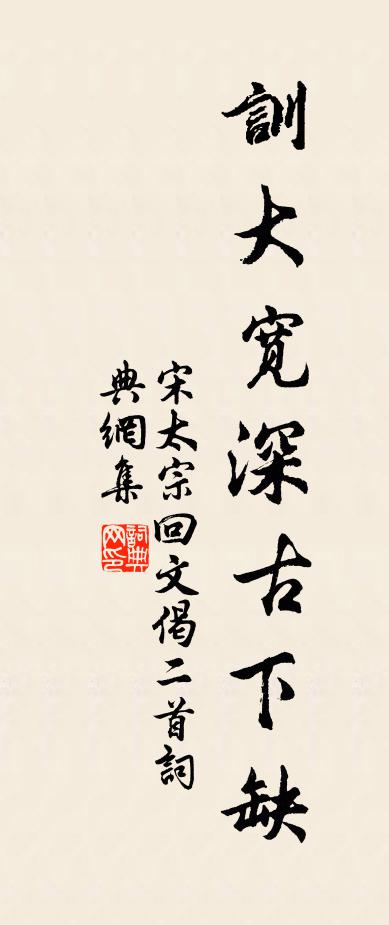 訓大寬深古下缺
宋太宗回文偈二首詞
典網集
詞典
网印